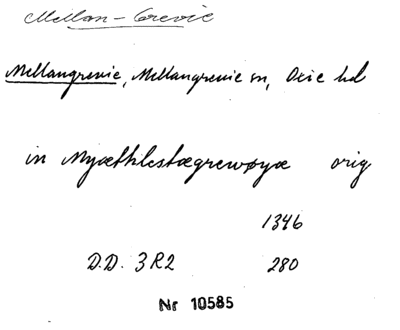 Mellan-Grevie
Mellangrevie, Mellangrevie sn, Oxie hd
in Myæthlestægrewøyæ orig
1346
D.D. 3 R 2 280
Nr 10585